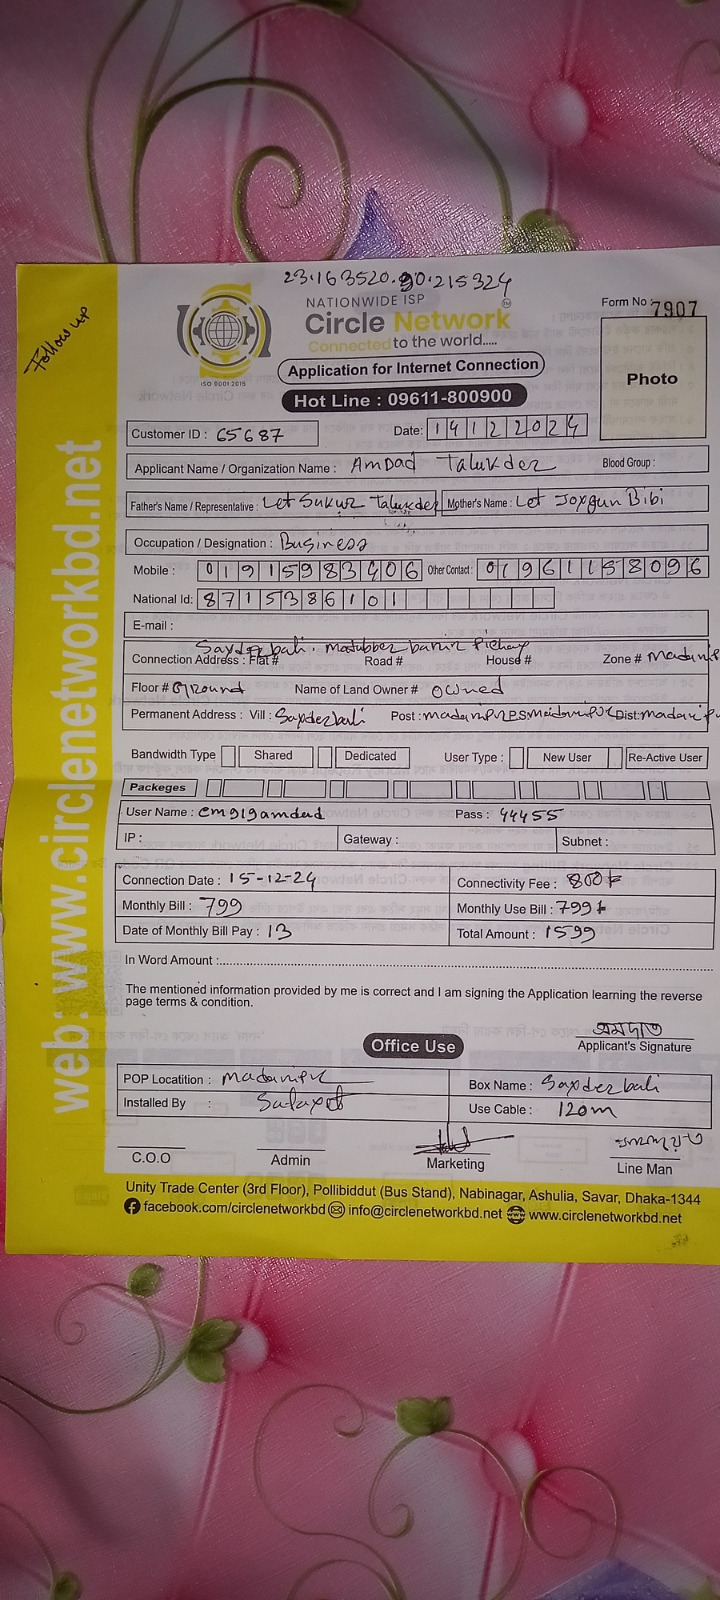 23.163520.90.215324
Follow up
NATIONWIDE ISP
Circle Network
Connected to the world.....
ISO 9001:2015
Form No : 7907
Application for Internet Connection
Photo
Hot Line : 09611-800900
Customer ID : 65687 Date: 14122024
Applicant Name / Organization Name : Amdad Talukder Blood Group :
Father's Name / Representative : Let Sukur Talukder Mother's Name : Let Joygun Bibi
Occupation / Designation : Business
Mobile : 01915983406 Other Contact : 01961158096
National Id: 8715386101
E-mail :
Connection Address : Flat # Road # House # Zone #
Floor # Ground Name of Land Owner # owned
Permanent Address : Vill : Post : Dist:
Bandwidth Type Shared Dedicated User Type : New User Re-Active User
Packeges
User Name : Pass : 44455
IP : Gateway : Subnet :
Connection Date : 15-12-24 Connectivity Fee : 800
Monthly Bill : 799 Monthly Use Bill : 799
Date of Monthly Bill Pay : 13 Total Amount : 1599
In Word Amount :
The mentioned information provided by me is correct and I am signing the Application learning the reverse
page terms & condition.
এমদাদ
Applicant's Signature
Office Use
POP Locatition : Box Name :
Installed By : Use Cable : 120m
C.O.O Admin Marketing Line Man
Unity Trade Center (3rd Floor), Pollibiddut (Bus Stand), Nabinagar, Ashulia, Savar, Dhaka-1344
facebook.com/circlenetworkbd info@circlenetworkbd.net www.circlenetworkbd.net
web: www.circlenetworkbd.net